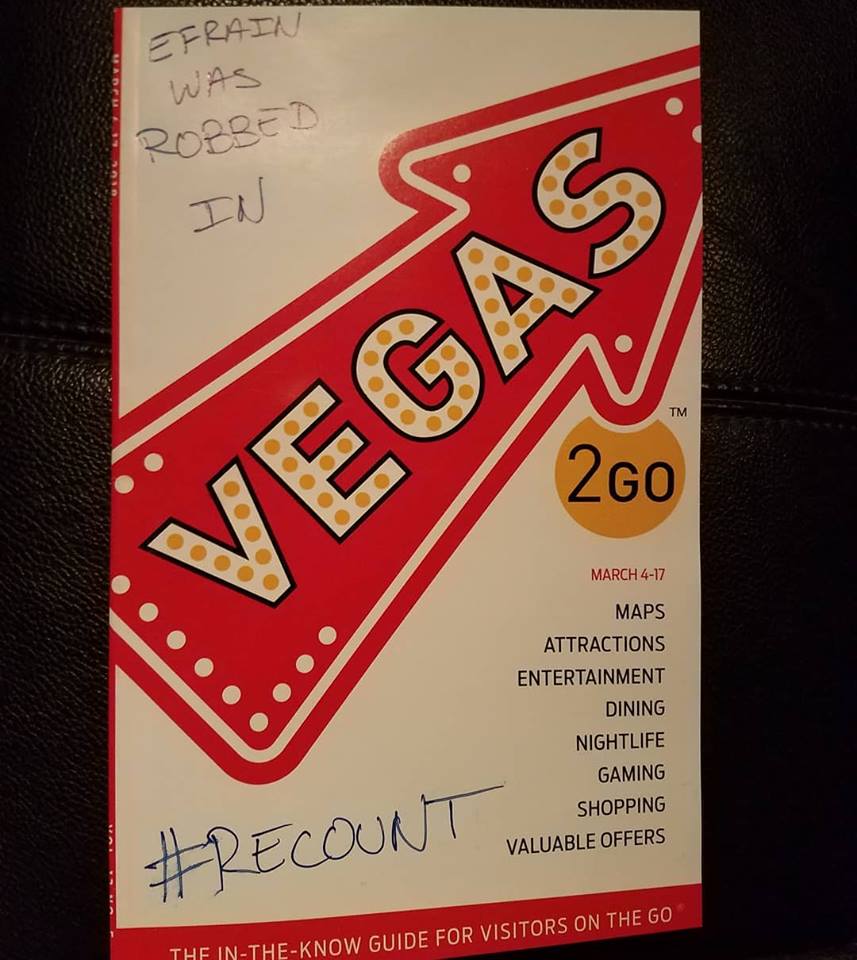 EFRAIN
WAS
ROBBED
IN
VEGAS
TM
2GO
MARCH 4-17
MAPS
ATTRACTIONS
ENTERTAINMENT
DINING
NIGHTLIFE
GAMING
SHOPPING
VALUABLE OFFERS
#RECOUNT
THE IN-THE-KNOW GUIDE FOR VISITORS ON THE GO